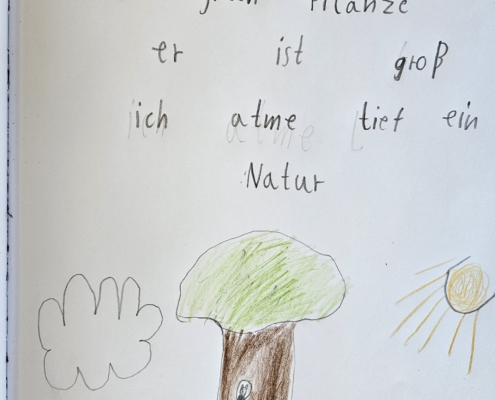 Pflanze
er ist groß
ich atme tief ein
Natur